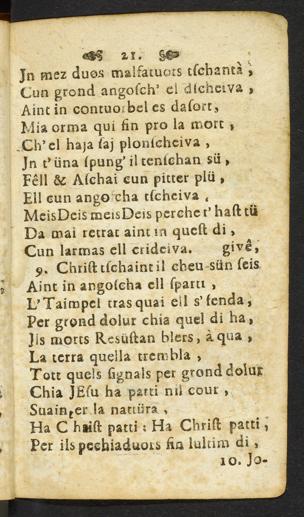 21.
Jn mez duos malfatuors tſchantà,
Cun grond angoſch' el dſcheiva,
Aint in contuorbel es daſort,
Mia orma qui ſin pro la mort,
Ch'el haja ſaj plonſcheiva,
Jn t'üna ſpung' il tenſchan sü,
Fêll & Aſchai cun pitter plü,
Ell cun angoſcha tſcheiva,
MeisDeis meisDeis perche t' haſt tü
Da mai retrat aint in queſt di,
Cun larmas ell crideiva. givê,
9. Chriſt tſchaint il cheu sün ſeis
Aint in angoſcha ell ſparti,
L'Taimpel tras quai eil s' ſenda,
Per grond dolur chia quel di ha,
Jls morts Resüſtan blers, à qua,
La terra quella trembla,
Tott quels ſignals per grond dolur
Chia JEſu ha patti nil cour,
Suainter la nattüra,
Ha Chriſt patti: Ha Chriſt patti,
Per ils pechiaduors ſin lultim di,
10. Jo-